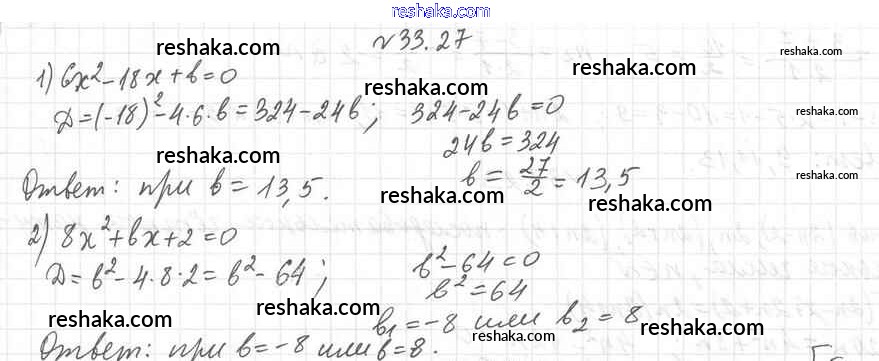 www.reshaka.com
№ 33.27
reshaka.com
reshaka.com
1) 6x² - 18x + b = 0
reshaka.com
D = (-18)² - 4·6·b = 324 - 24b; 324 - 24b = 0
24b = 324
reshaka.com
b = 27/2 = 13,5
reshaka.com
reshaka.com
Ответ: при b = 13,5.
reshaka.com
2) 8x² + bx + 2 = 0
reshaka.com
D = b² - 4·8·2 = b² - 64; b² - 64 = 0
b² = 64
reshaka.com
reshaka.com
b₁ = -8 или b₂ = 8
reshaka.com
reshaka.com
Ответ: при b = -8 или b = 8.